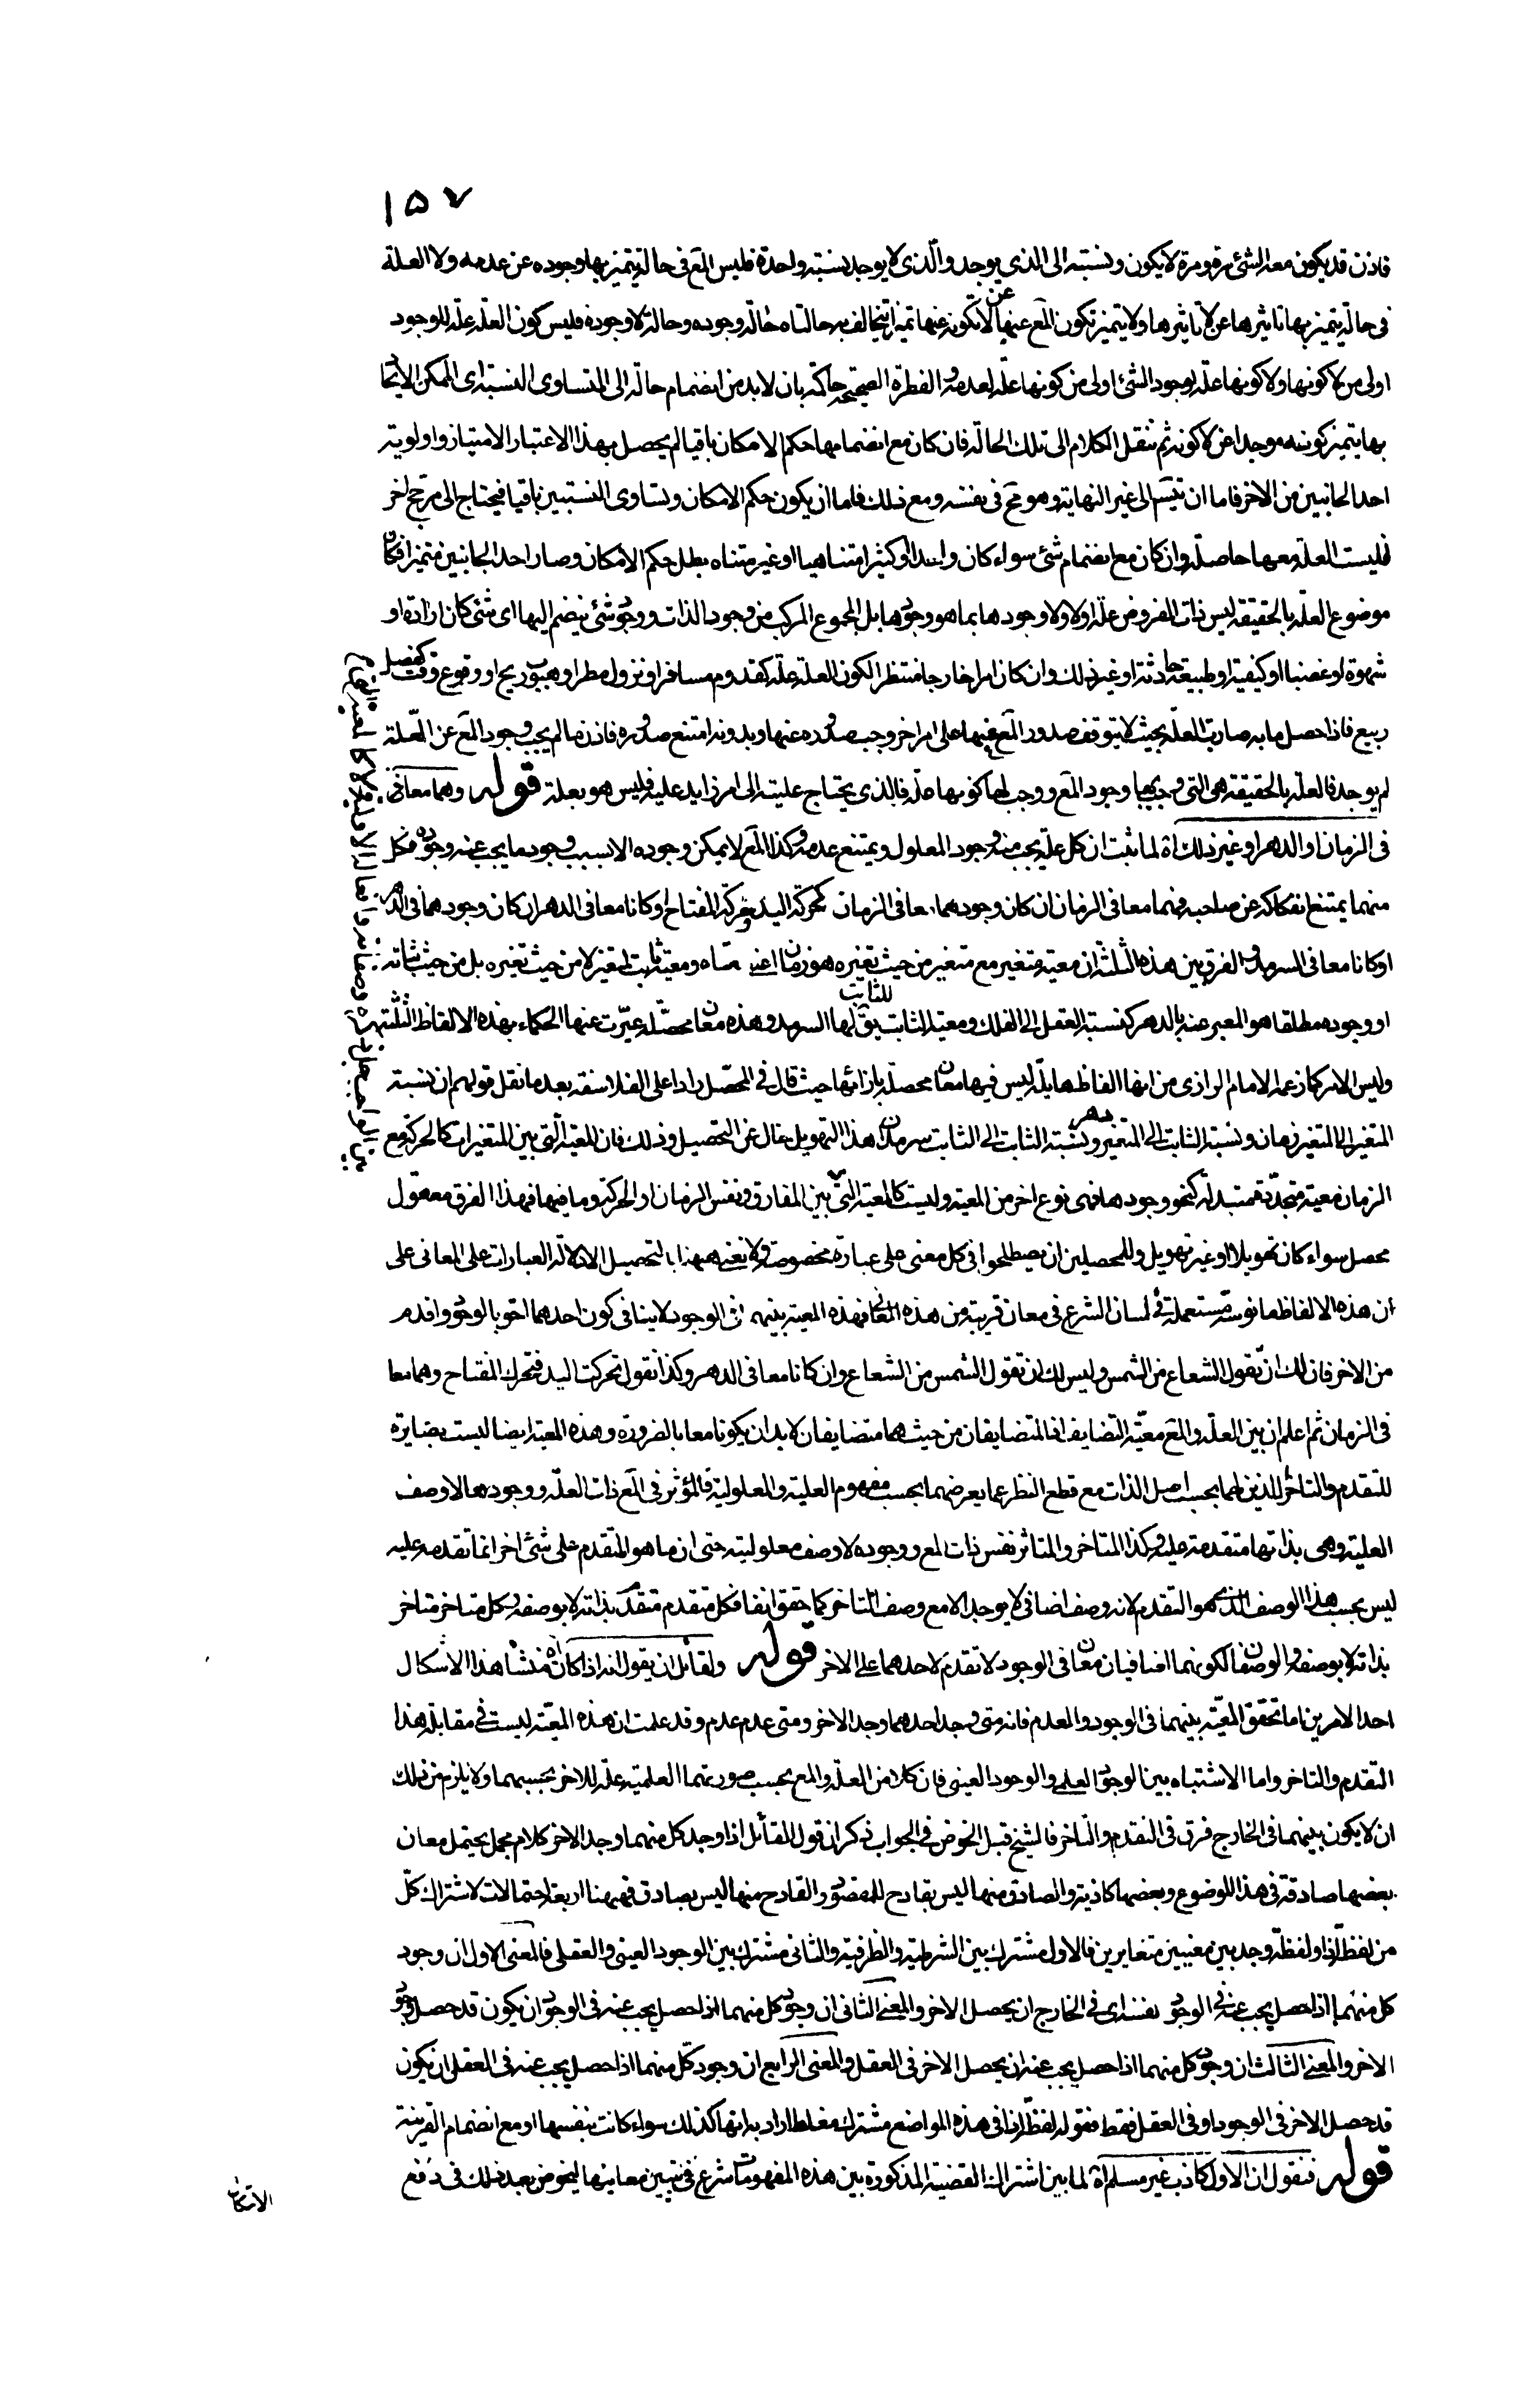 ١٥٧
فاذن قد يكون معه الشئ مرة ومرة لا يكون ونسبته الى الذي يوجد والذي لا يوجد نسبته واحدة فليس المع في حالة يتميز بها وجوده عن عدمه ولا العلة
في حالة يتميز بها تاثيرها عن لا تاثيرها ولا يتميز تكون المع عنها عن لا تكونه عنها تميزا يتخالف به حالتاه حالة وجوده وحالة لا وجوده فليس كون العلة علة للوجود
اولى من لا كونها ولا كونها علة لوجود الشئ اولى من كونها علة لعدمه والفطرة الصحيحة حاكمة بان لا بد من انضمام حالة الى المتساوى النسبة اى الممكن الايجاد
بها يتميز كونه موجدا عن لا كونه ثم ننقل الكلام الى تلك الحالة فان كان مع انضمامها حكم الامكان باقيا لم يحصل بهذا الاعتبار الامتياز واولوية
احد الجانبين من الاخر فاما ان يتسم الى غير النهاية وهو مح في نفسه ومع ذلك فاما ان يكون حكم الامكان وتساوى النسبتين باقيا فيحتاج الى مرجح اخر
فليست العلة معها حاصلة وان كان مع انضمام شئ سواء كان واحدا او كثيرا متناهيا او غير متناه بطل حكم الامكان وصار احد الجانبين متميزا فكان
موضوع العلة بالحقيقة ليس ذات المفروض علة اولا ولا وجودها بما هو وجودها بل المجموع المركب من وجود الذات ووجود شئ ينضم اليها اى شئ كان ارادة او
شهوة او غضبا او كيفية او طبيعة حادثة او غير ذلك وان كان امرا خارجا منتظرا لكون العلة علة كقدوم مسافر او نزول مطر او هبوب ريح او وقوع وقت كفصل
ربيع فاذا حصل ما به صارت العلة بحيث لا يتوقف صدور المع عنها على امر اخر وجب صدوره عنها وبدونه امتنع صدوره فاذن ما لم يجب وجود المع عن العلة
لم يوجد فالعلة بالحقيقة هى التى وجب بها وجود المع ووجب لها كونها علة فالذى يحتاج عليته الى امر زايد عليه فليس هو بعلة قوله وهما معا في
في الزمان او الدهر او غير ذلك اه لما ثبت ان كل علة يجب منه وجود المعلول ويمتنع عدمه وكذا المع لا يمكن وجوده الا بسبب وجود ما يجب عنه وجوده فكل
منهما يمتنع انفكاكه عن صاحبه فهما معا في الزمان ان كان وجودهما معا في الزمان كحركة اليد وحركة المفتاح او كانا معا في الدهر ان كان وجودهما في الدهر
او كانا معا في السرمد والفرق بين هذه الثلثة ان معية متغير مع متغير من حيث تغيره هو زمان اعنى متاه ومعية ثابت لمتغير لا من حيث تغيره بل من حيث ثباته
او وجوده مطلقا هو المعبر عنه بالدهر كنسبة العقل الى الفلك ومعية الثابت للثابت يق لها السرمد وهذه معان محصلة عبرت عنها الحكماء بهذه الالفاظ الثلثة
وليس الامر كما زعمه الامام الرازى من انها الفاظ هايلة ليس فيها معان محصلة بازائها حيث قال في المحصل رادا على الفلاسفة بعد ما نقل قولهم ان نسبة
المتغير الى المتغير زمان ونسبة الثابت الى المتغير دهر ونسبة الثابت الى الثابت سرمد ان هذا التهويل خال عن التحصيل وذلك فان المعية التى بين المتغيرات كالحركة مع
الزمان معية متجددة متبدلة كنحو وجودها فهى نوع اخر من المعية وليست كالمعية التى بين المفارق ونفس الزمان او الحركة وما فيها فهذا الفرق معقول
محصل سواء كان تهويلا او غير تهويل وللمحصلين ان يصطلحوا في كل معنى على عبارة مخصوصة ولا نعنى ههنا بالتحصيل الا دلالة العبارات على المعانى على
ان هذه الالفاظ مانوسة مستعملة في لسان الشرع في معان قريبة من هذه المعانى فهذه المعية بينهما في الوجود لا ينافى كون احدهما احق بالوجود واقدم
من الاخر فان لك ان تقول الشعاع من الشمس وليس لك ان تقول الشمس من الشعاع وان كانا معا في الدهر وكذا نقول تحركت اليد فتحرك المفتاح وهما معا
في الزمان ثم اعلم ان بين العلة والمع معية التضايف اذ المتضايفان من حيث هما متضايفان لا بد ان يكونا معا بالضرورة وهذه المعية ايضا ليست بضايرة
للتقدم والتاخر اللذين لهما بحسب اصل الذات مع قطع النظر عما يعرضهما بحسب مفهوم العلية والمعلولية فالمؤثر في المع ذات العلة ووجودها لا وصف
العلية وهى بذاتها متقدمة عليه وكذا المتاخر والمتاثر نفس ذات المع ووجوده لا وصف معلوليته حتى ان ما هو المتقدم على شئ اخر انما تقدمه عليه
ليس بحسب هذا الوصف الذى هو التقدم لانه وصف اضافى لا يوجد الا مع وصف التاخر كما حقق انفا فكل متقدم متقدم بذاته لا بوصفه وكل متاخر متاخر
بذاته لا بوصفه والوصفان لكونهما اضافيان معان في الوجود لا تقدم لاحدهما على الاخر قوله ولقائل ان يقول انه اذا كان اه منشأ هذا الاشكال
احد الامرين اما تحقق المعية بينهما في الوجود والعدم فانه متى وجد احدهما وجد الاخر ومتى عدم عدم وقد علمت ان هذه المعية ليست في مقابلة هذا
التقدم والتاخر واما الاشتباه بين الوجود العلمى والوجود العينى فان كلا من العلة والمع بحسب صورتهما العلمية علة للاخر بحسبهما ولا يلزم من ذلك
ان لا يكون بينهما في الخارج فرق في التقدم والتاخر فالشيخ قبل الخوض في الجواب ذكر ان قول القائل اذا وجد كل منهما وجد الاخر كلام مجمل يحتمل معان
بعضها صادقة في هذا الموضوع وبعضها كاذبة والصادق منها ليس بقادح للمقصود والقادح منها ليس بصادق فههنا اربعة احتمالات لاشتراك كل
من لفظة اذا ولفظة وجد بين معنيين متغايرين فالاول مشترك بين الشرطية والظرفية والثانى مشترك بين الوجود العينى والعقلى فالمعنى الاول ان وجود
كل منهما اذا حصل يجب عنه في الوجود نفسه اى في الخارج ان يحصل الاخر والمعنى الثانى ان وجود كل منهما اذا حصل يجب عنه في الوجود ان يكون قد حصل وجود
الاخر والمعنى الثالث ان وجود كل منهما اذا حصل يجب عنه ان يحصل الاخر في العقل والمعنى الرابع ان وجود كل منهما اذا حصل يجب عنه في العقل ان يكون
قد حصل الاخر في الوجود او في العقل فقط فقوله لفظة اذا في هذه المواضع مشترك مغلط اراد به انها كذلك سواء كانت بنفسها او مع انضمام القرينة
قوله فنقول ان الاول كاذب غير مسلم اه لما بين اشتراك القضية المذكورة بين هذه المفهومات شرع في تبيين معاينها ليخوض بعد ذلك في دفع
الاشكال